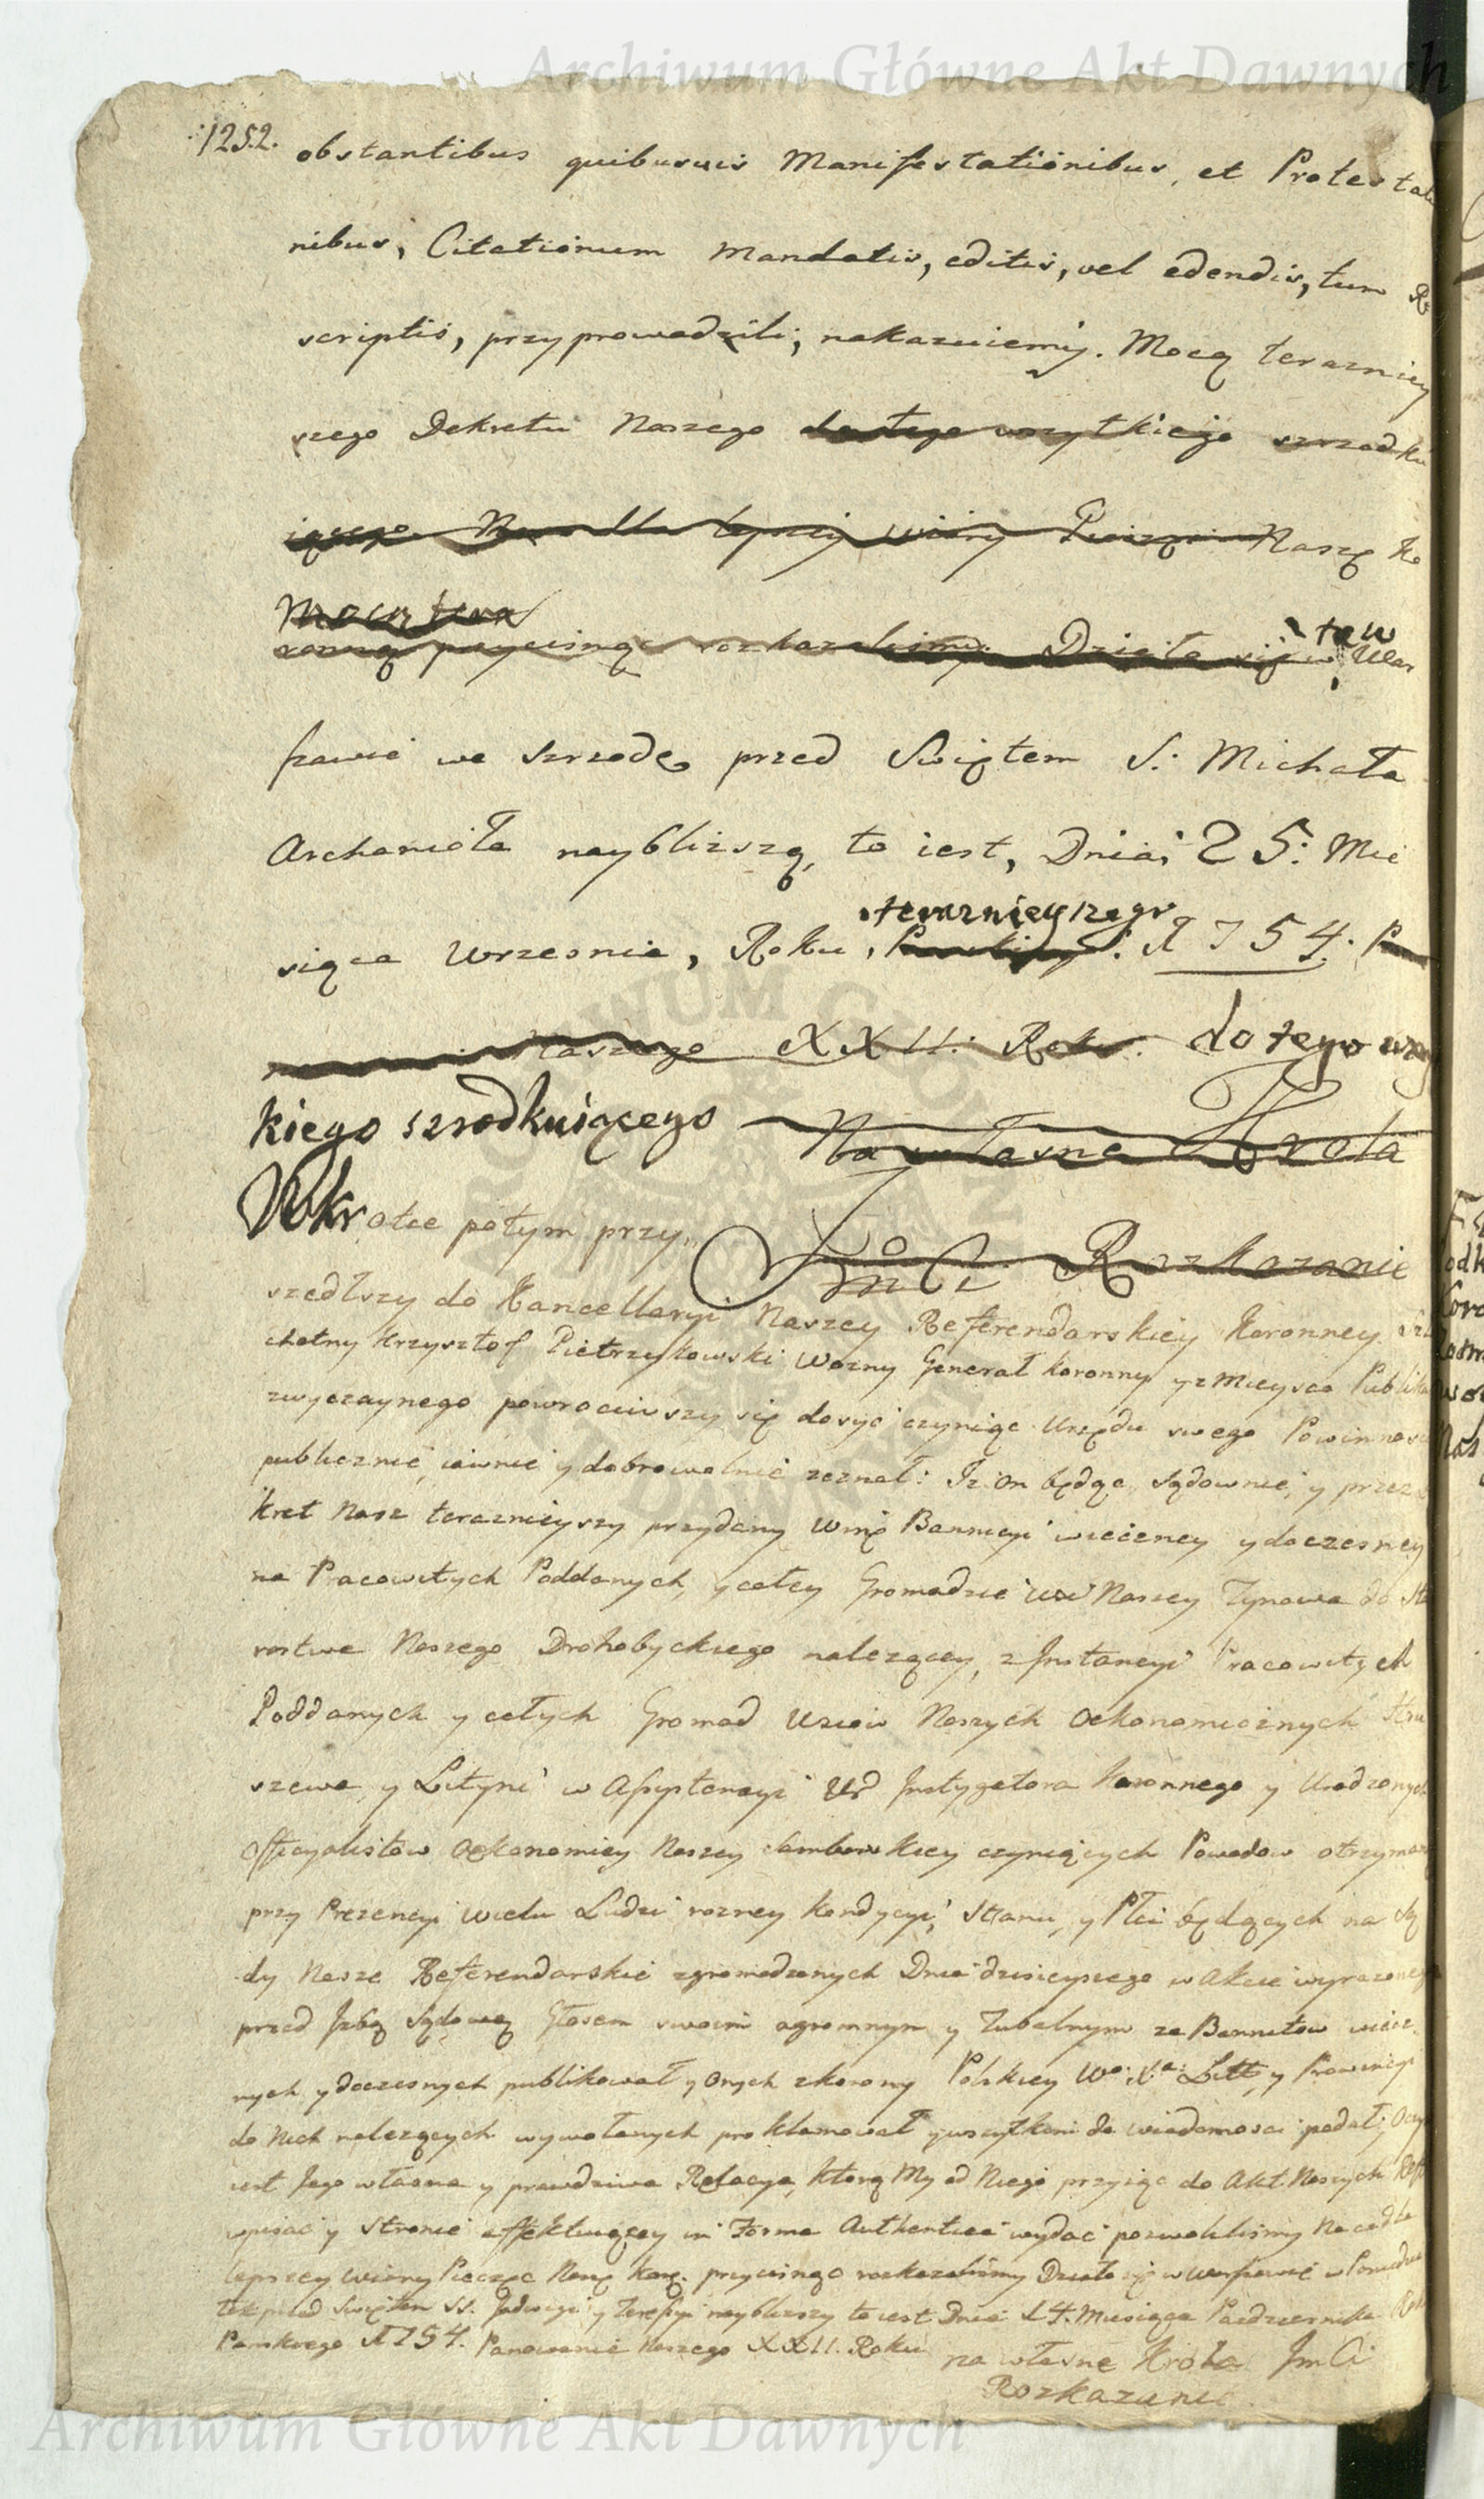 Archiwum Główne Akt Dawnych
1252.
obstantibus quibusvis Manifestationibus, et Protestatio
nibus, Citationum Mandatis, editis, vel edendis, tum Re
scriptis, przyprowadzili; nakazuiemy. Mocą terazniey
szego Dekretu Naszego do tego wszytkiego szrzodku
iącego. Na co dla lepszey wiary Pieczęć Naszą Ko
Mocą tera
ronną przycisnąć rozkazaliśmy. Działo się w taw War
szawie we Szrzodę przed Swiętem S. Michała
Archanioła naybliższą, to iest, Dnia 25. Mie
teraznieyszego
siąca Wrzesnia, Roku, Pańskiego 1754. Pa
naszego XXII. Roku. do tego wszy
kiego szrodkuiącego Na własne Króla
Wkrotce potym przy
JmCi Rozkazanie
szedłszy do Kancellaryi Naszey Referendarskiey Koronney. Szla
chetny Krzysztof Pietrzykowski Wozny Generał Koronny y z Mieysca Publika
zwyczaynego powrociwszy się dosyć czyniąc Urzędu swego Powinności
publicznie, iawnie y dobrowolnie zeznał: Iz on będąc Sądownie, y przez
kret Nasz teraznieyszy przydany Winę Bannicyi wieczney y doczesney
na Pracowitych Poddanych, y całey Gromadzie Wsi Naszey Tynowa do Sta
rostwa Naszego Drohobyckiego nalezącey, z Instancyi Pracowitych
Poddanych y całych Gromad Wsiow Naszych Oekonomicznych
szewa y Letyni w Assystencyi Ur Instygatora Koronnego y Urodzonych
Officyalistow Oekonomiey Naszey Samborskiey czyniących Powodow otrzymaną
przy Prezencyi wielu Ludzi rozney Kondycyi, Stanu, y Płci będących na Są
dy Nasze Referendarskie zgromadzonych Dnia dzisieyszego w Akcie wyrazonego
przed Izbą Sądową Głosem swoim ogromnym y Tubalnym za Bannitow wiecz
nych y doczesnych publikował y onych z Korony Polskiey Wo. Xa. Litt. y Prowincyi
do Nich nalezących wywołanych proklamował y wszytkim do wiadomosci podał; O czym
iest Jego własna y prawdziwa Relacya, ktorą My od Niego przyiąć do Akt Naszych Refe
wpisać y Stronie affektuiącey in Forma Authentica wydać pozwoliliśmy Na co dla
lepszey wiary Pieczęć Naszą Kor. przycisnąć rozkazaliśmy Działo się w Warszawie w Poniedział
tek przed Swiętem SS. Jadwigi y Teressyi naybliższy to iest Dnia 14. Miesiąca Pazdziernika Roku
Panskiego 1754. Panowania Naszego XXII. Roku na własne Króla JmCi
Rozkazanie.
Archiwum Główne Akt Dawnych